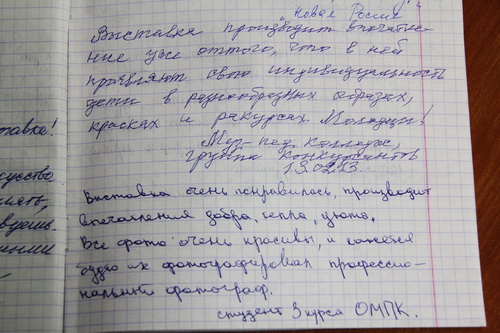 "Новая Россия"
Выставка производит впечатле-
ние уже оттого, что в ней
проявляют свою индивидуальность
дети в разнообразных образах,
красках и ракурсах. Молодцы!
Мед-пед. колледж,
группа
13.02.13.
Выставка очень понравилась, производит
впечатления добра, тепла, уюта.
Все фото очень красивы, и кажется
будто их фотографировал профессио-
нальный фотограф.
студент 3 курса ОМПК.
тавка!